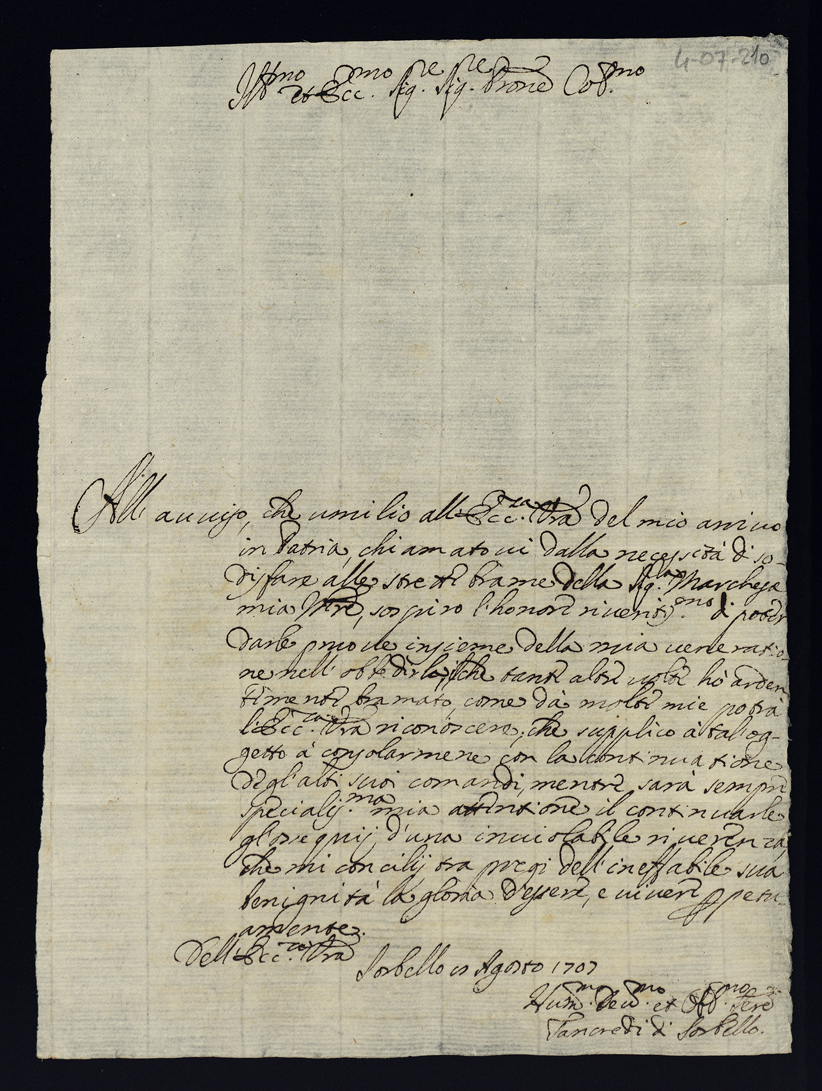 4-07-210
Ill.mo et Ecc.mo Sig.re Sig.re Prone Col.mo
All'auuiso, che umilio all'Ecc.za Vra del mio arriuo
in Patria, chiamatoui dalla necessità di so-
disfare alle strette brame della Sig.ra Marchesa
mia Mre, sospiro l'honore riuerit.mo di poter
darle proue insieme della mia veneratio-
ne nell'obedirla, che tante altre uolte hò arden
temente bramato, come dà molte mie potrà
l'Ecc.za Vra riconoscere; che supplico à tal og-
getto à consolarmene con la continuatione
degl'alti suoi comandi, mentre sarà sempre
specialis.ma mia attentione il continuarle
gl'ossequij d'una inuiolabile riuerenza,
che mi concilij tra pregi dell'ineffabile sua
benignità la gloria d'essere, e uiuere ppetu-
amente.
Dell'Ecc.za Vra
Sorbello Agosto 1707
Hum.mo Deu.mo et Obl.mo Sere
Tancredi di Sorbello.